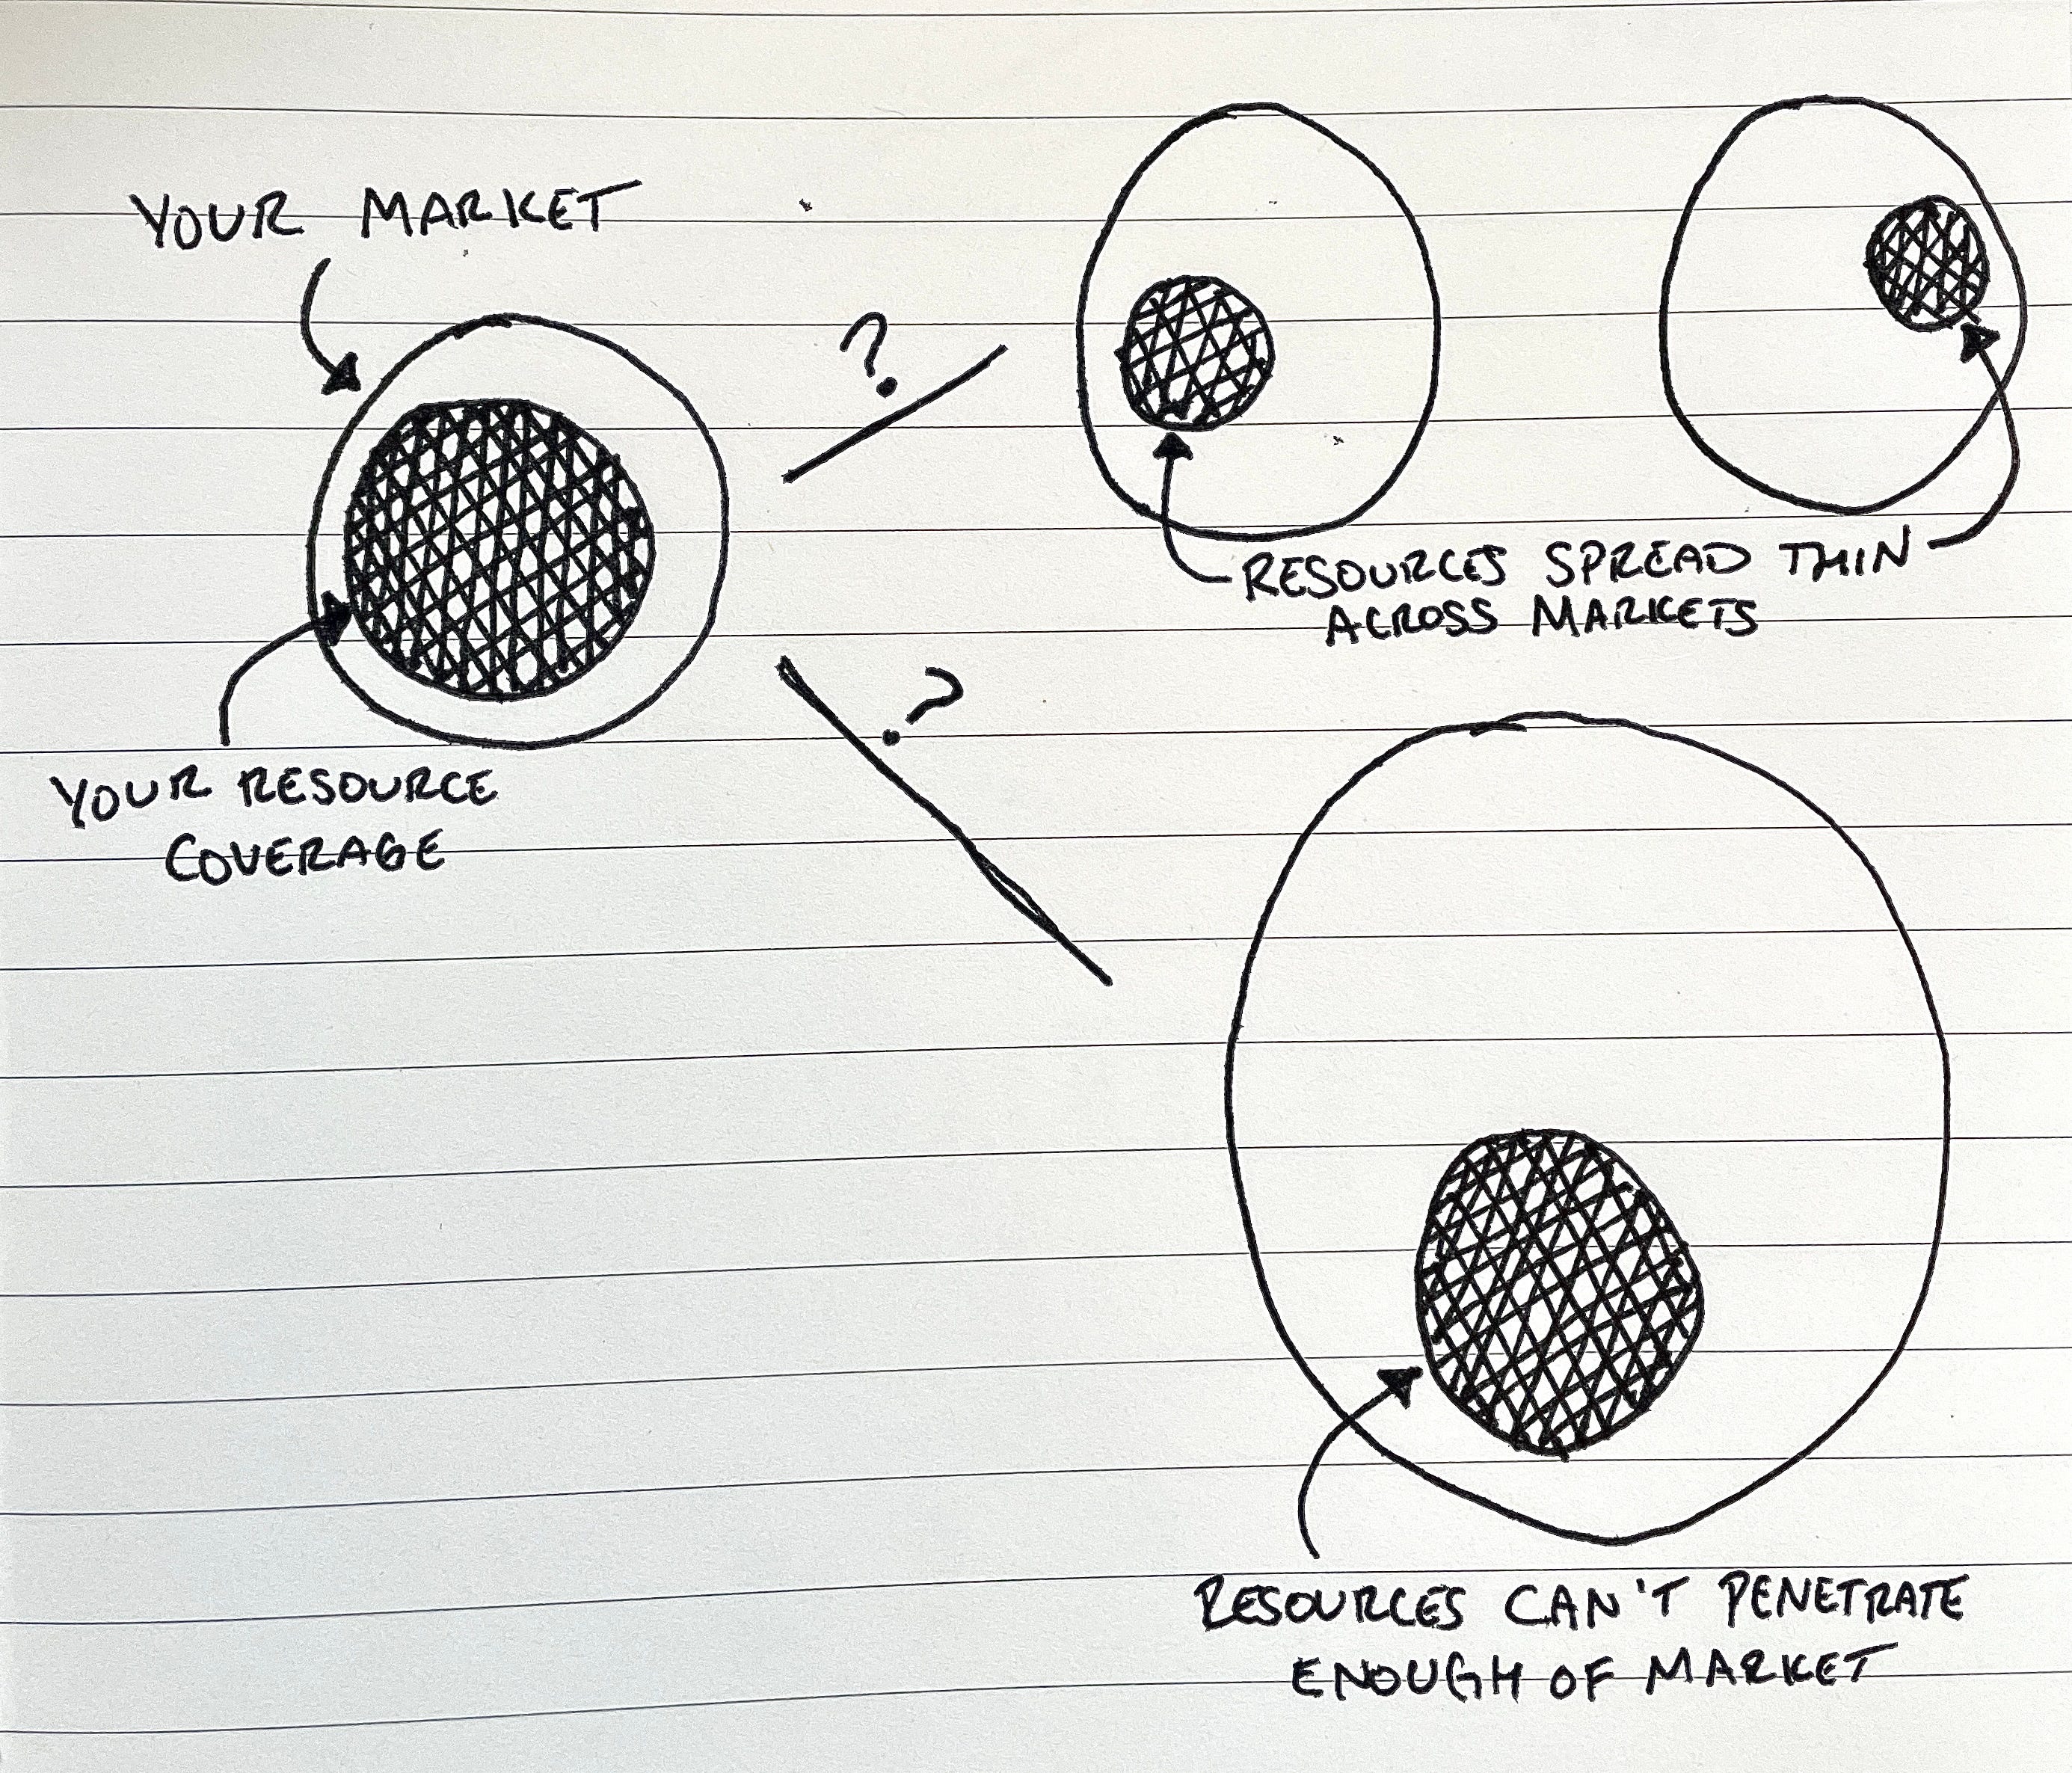 YOUR MARKET
?
RESOURCES SPREAD THIN
ACROSS MARKETS
?
YOUR RESOURCE
COVERAGE
RESOURCES CAN'T PENETRATE
ENOUGH OF MARKET